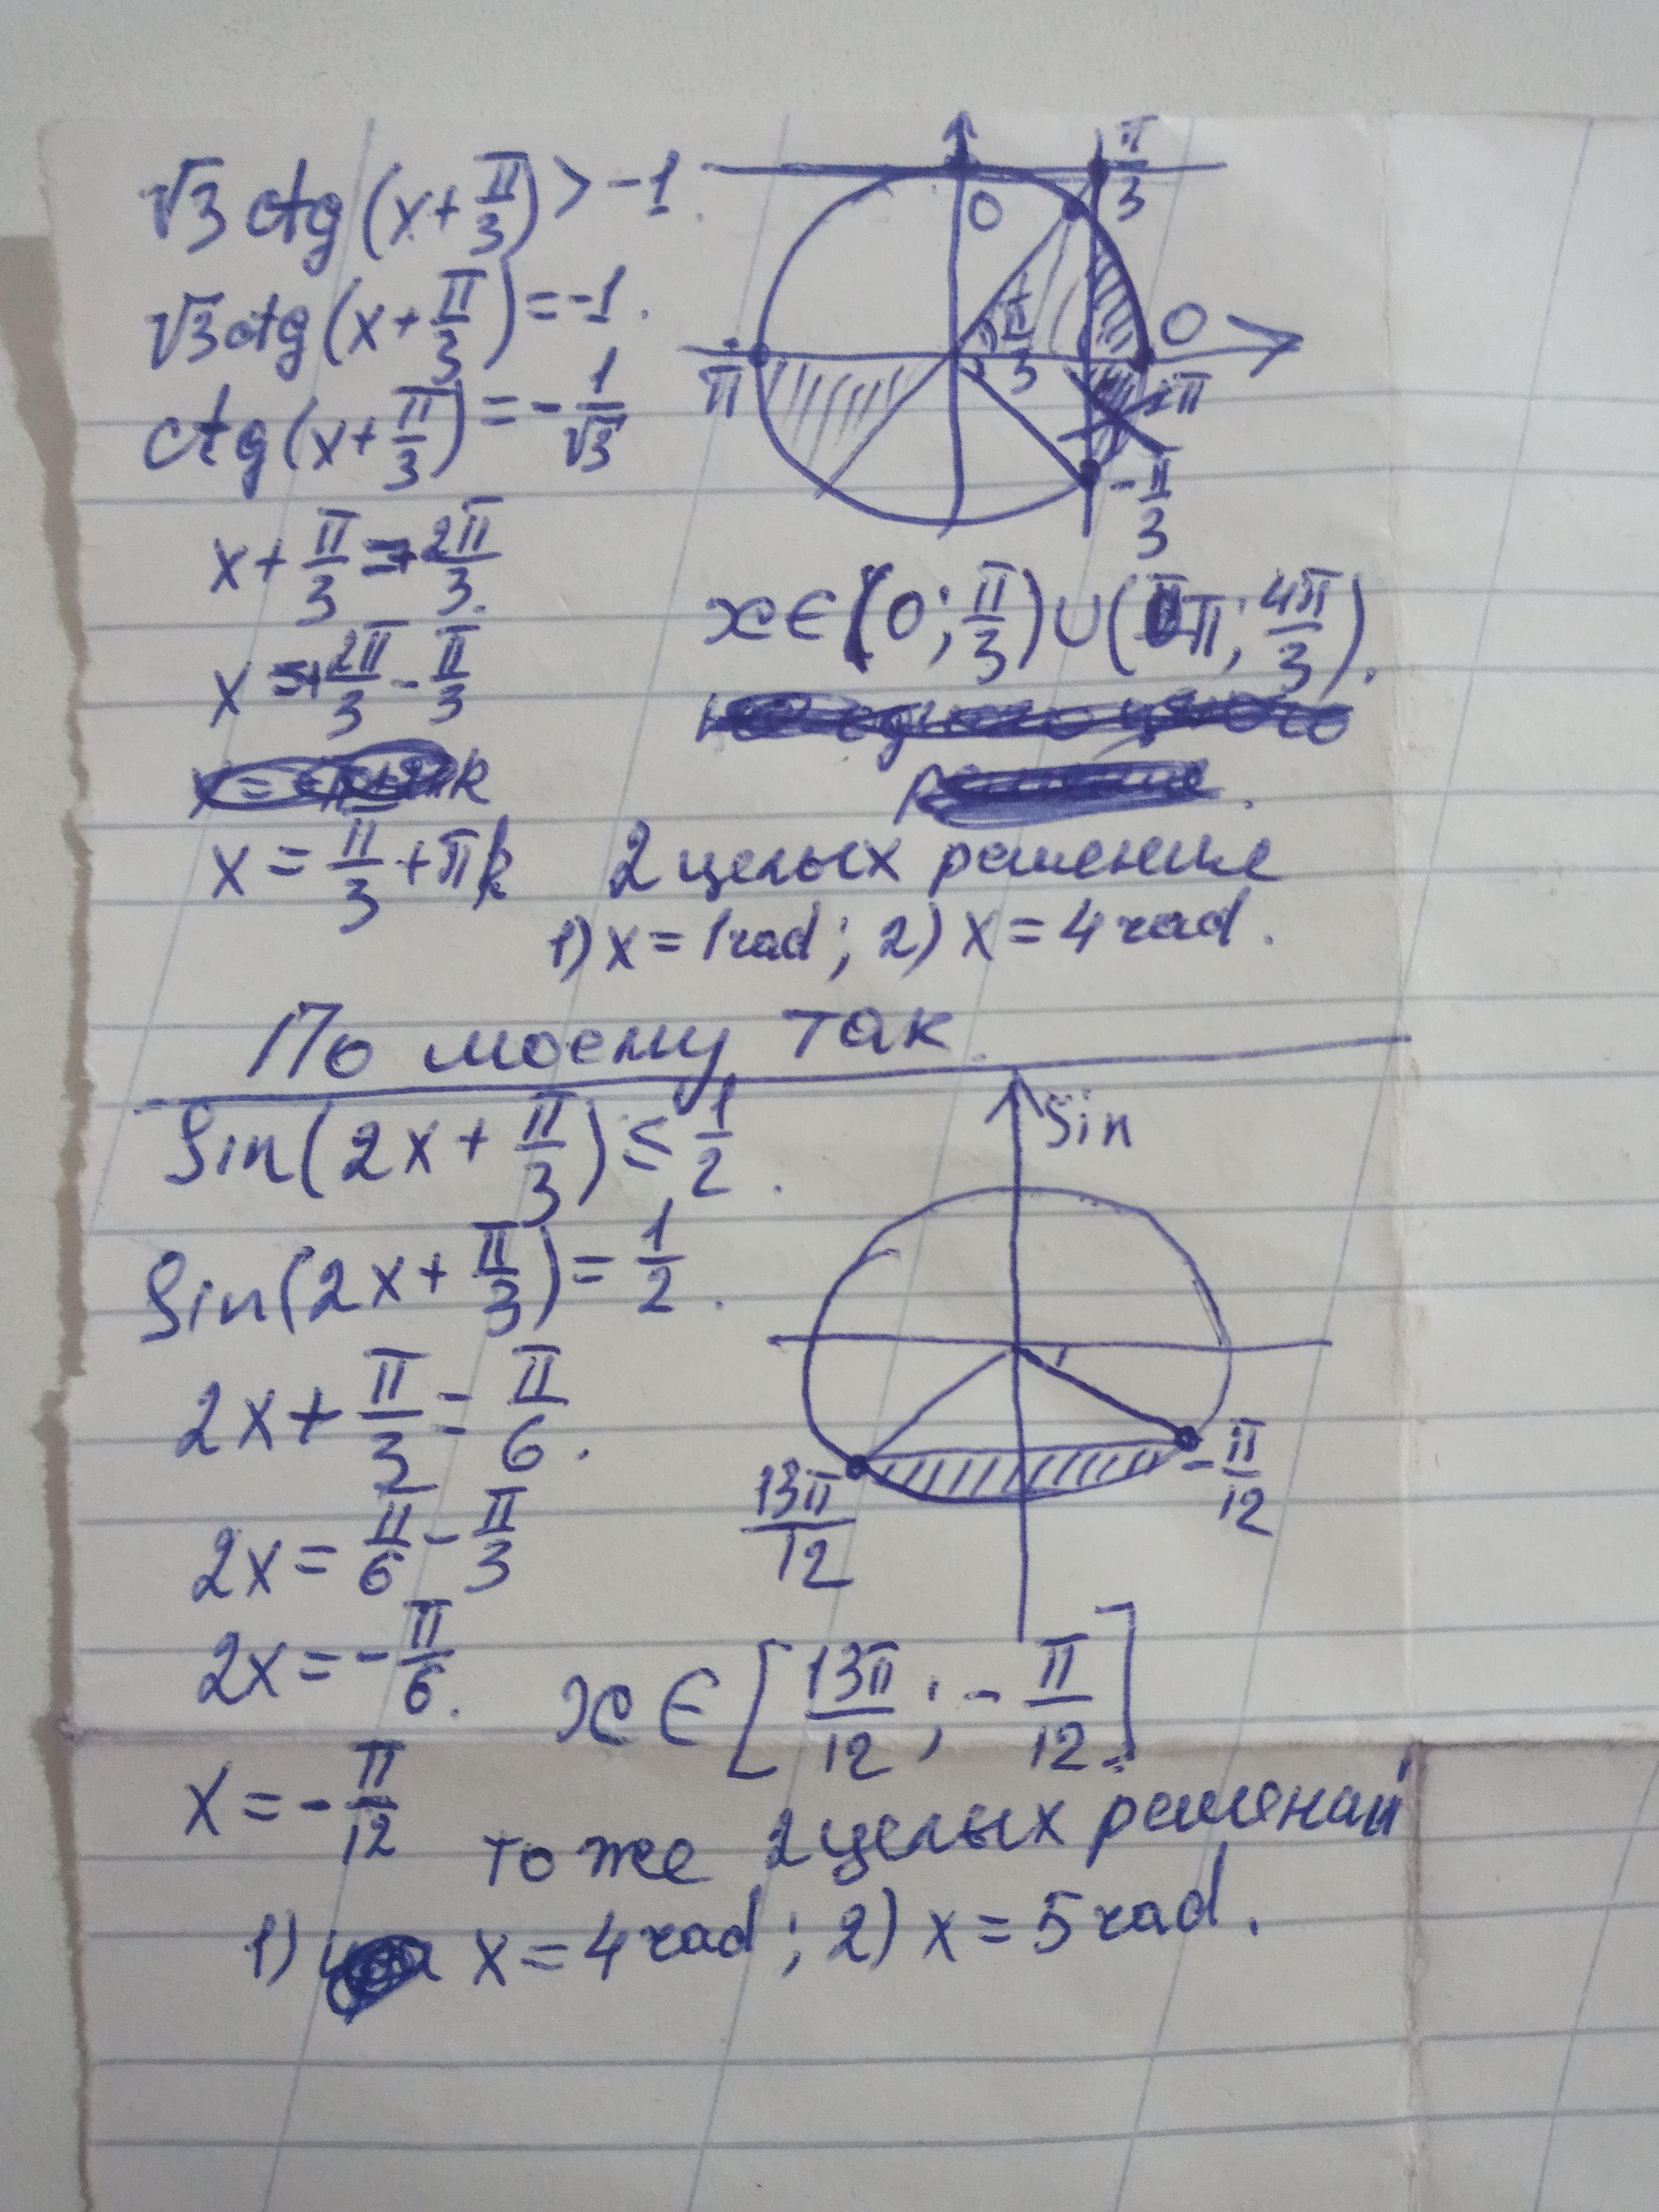 √3 ctg(x + π/3) > -1.
√3 ctg(x + π/3) = -1.
ctg(x + π/3) = - 1/√3
x + π/3 = + 2π/3.
x = + 2π/3 - π/3
x = π/3 + πk
π/3
0
π/3
0
π
2π
-π/3
x ∈ (0; π/3) ∪ (π; 4π/3).
2 целых решение
1) x = 1 rad; 2) x = 4 rad.
По моему так.
Sin(2x + π/3) ≤ 1/2.
Sin
Sin(2x + π/3) = 1/2.
2x + π/3 = π/6.
2x = π/6 - π/3
2x = - π/6.
x = - π/12
13π/12
-π/12
x ∈ [13π/12; - π/12]
то же 2 целых решений
1) x = 4 rad; 2) x = 5 rad.